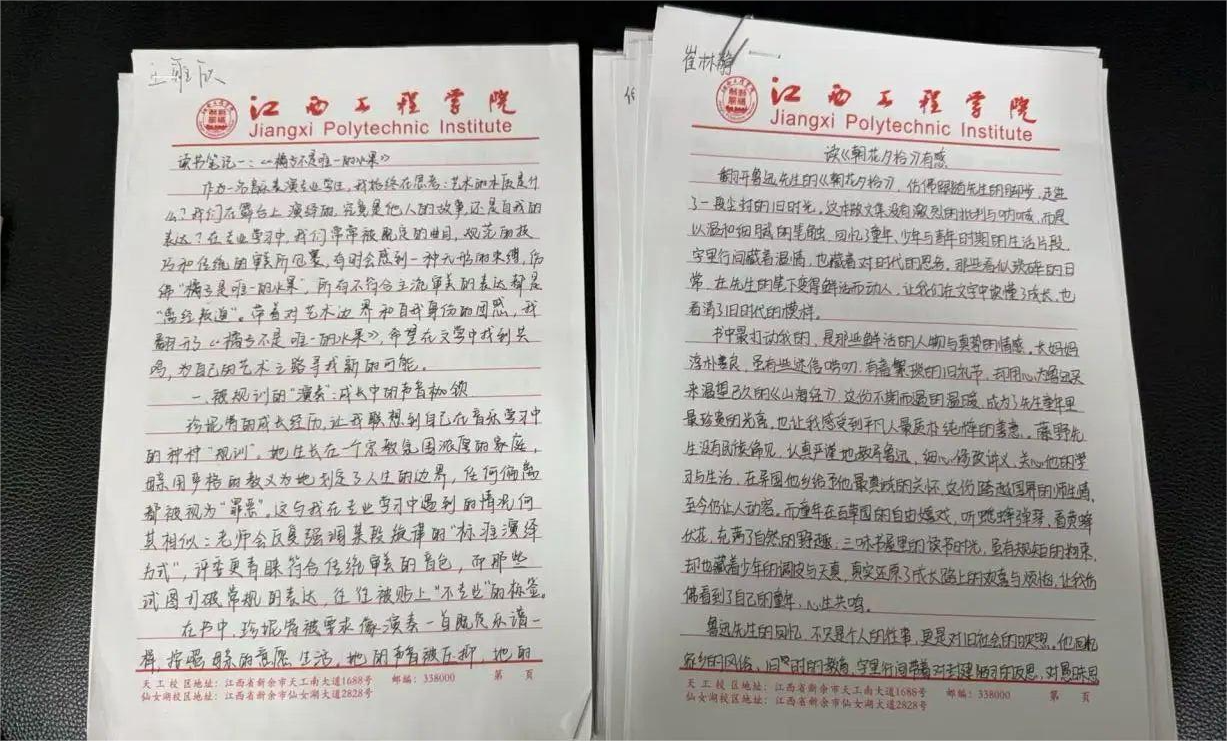 王雅欣
江西工程学院
Jiangxi Polytechnic Institute
读书笔记一：《橘子不是唯一的水果》
作为一名音乐表演专业学生，我始终在思考：艺术的本质是什
么？我们在舞台上演绎的，究竟是他人的故事还是自我的
表达？在专业学习中，我们常常被既定的曲目、规范的技
巧和传统的审美所包裹，有时会感到一种无形的束缚，仿
佛“橘子是唯一的水果”，所有不符合主流审美的表达都是
“离经叛道”。带着对艺术边界和自我身份的困惑，我
翻开了《橘子不是唯一的水果》，希望在文学中找到共
鸣，为自己的艺术之路寻找新的可能。
一、被规训的“演奏”：成长中的声音枷锁
珍妮特的成长经历，让我联想到自己在音乐学习中
的种种“规训”。她生长在一个宗教氛围浓厚的家庭，
母亲用严格的教义为她划定了人生的边界，任何偏离
都被视为“罪恶”。这与我在专业学习中遇到的情况何
其相似：老师会反复强调某段旋律的“标准演绎
方式”，评委更青睐符合传统审美的音色，而那些
试图打破常规的表达，往往被贴上“不专业”的标签。
在书中，珍妮特被要求像演奏一首既定乐谱一
样，按照母亲的意愿生活，她的声音被压抑，她的
天工校区地址：江西省新余市天工南大道1688号 邮编：338000 第 页
仙女湖校区地址：江西省新余市仙女湖大道2828号
崔林静
江西工程学院
Jiangxi Polytechnic Institute
读《朝花夕拾》有感
翻开鲁迅先生的《朝花夕拾》，仿佛跟随先生的脚步，走进
了一段尘封的旧时光。这本散文集没有激烈的批判与呐喊，而是
以温和细腻的笔触，回忆了童年、少年与青年时期的生活片段，
字里行间藏着温情，也藏着对时代的思考。那些看似琐碎的日
常，在先生的笔下变得鲜活而动人，让我们在文字中读懂了成长，也
看清了旧时代的模样。
书中最打动我的，是那些鲜活的人物与真挚的情感。长妈妈
淳朴善良，虽有些迷信唠叨，有着繁琐的旧礼节，却用心为鲁迅买
来渴望已久的《山海经》，这份不期而遇的温暖，成为了先生童年里
最珍贵的光亮，也让我感受到平凡人最质朴纯粹的善意。藤野先
生没有民族偏见，认真严谨地教导鲁迅，细心修改讲义，关心他的学
习与生活，在异国他乡给予他最真诚的关怀，这份跨越国界的师生情，
至今仍让人动容。而童年在百草园的自由嬉戏，听蟋蟀弹琴，看黄蜂
伏花，充满了自然的野趣，三味书屋里的读书时光，虽有规矩的拘束，
却也藏着少年的调皮与天真，真实还原了成长路上的欢喜与烦恼，让我仿
佛看到了自己的童年，心生共鸣。
鲁迅先生的回忆，不只是个人的往事，更是对旧社会的映照。他
家乡的风俗、旧时的教育，字里行间带着对封建陋习的反思，对愚昧思
天工校区地址：江西省新余市天工南大道1688号 邮编：338000 第 页
仙女湖校区地址：江西省新余市仙女湖大道2828号